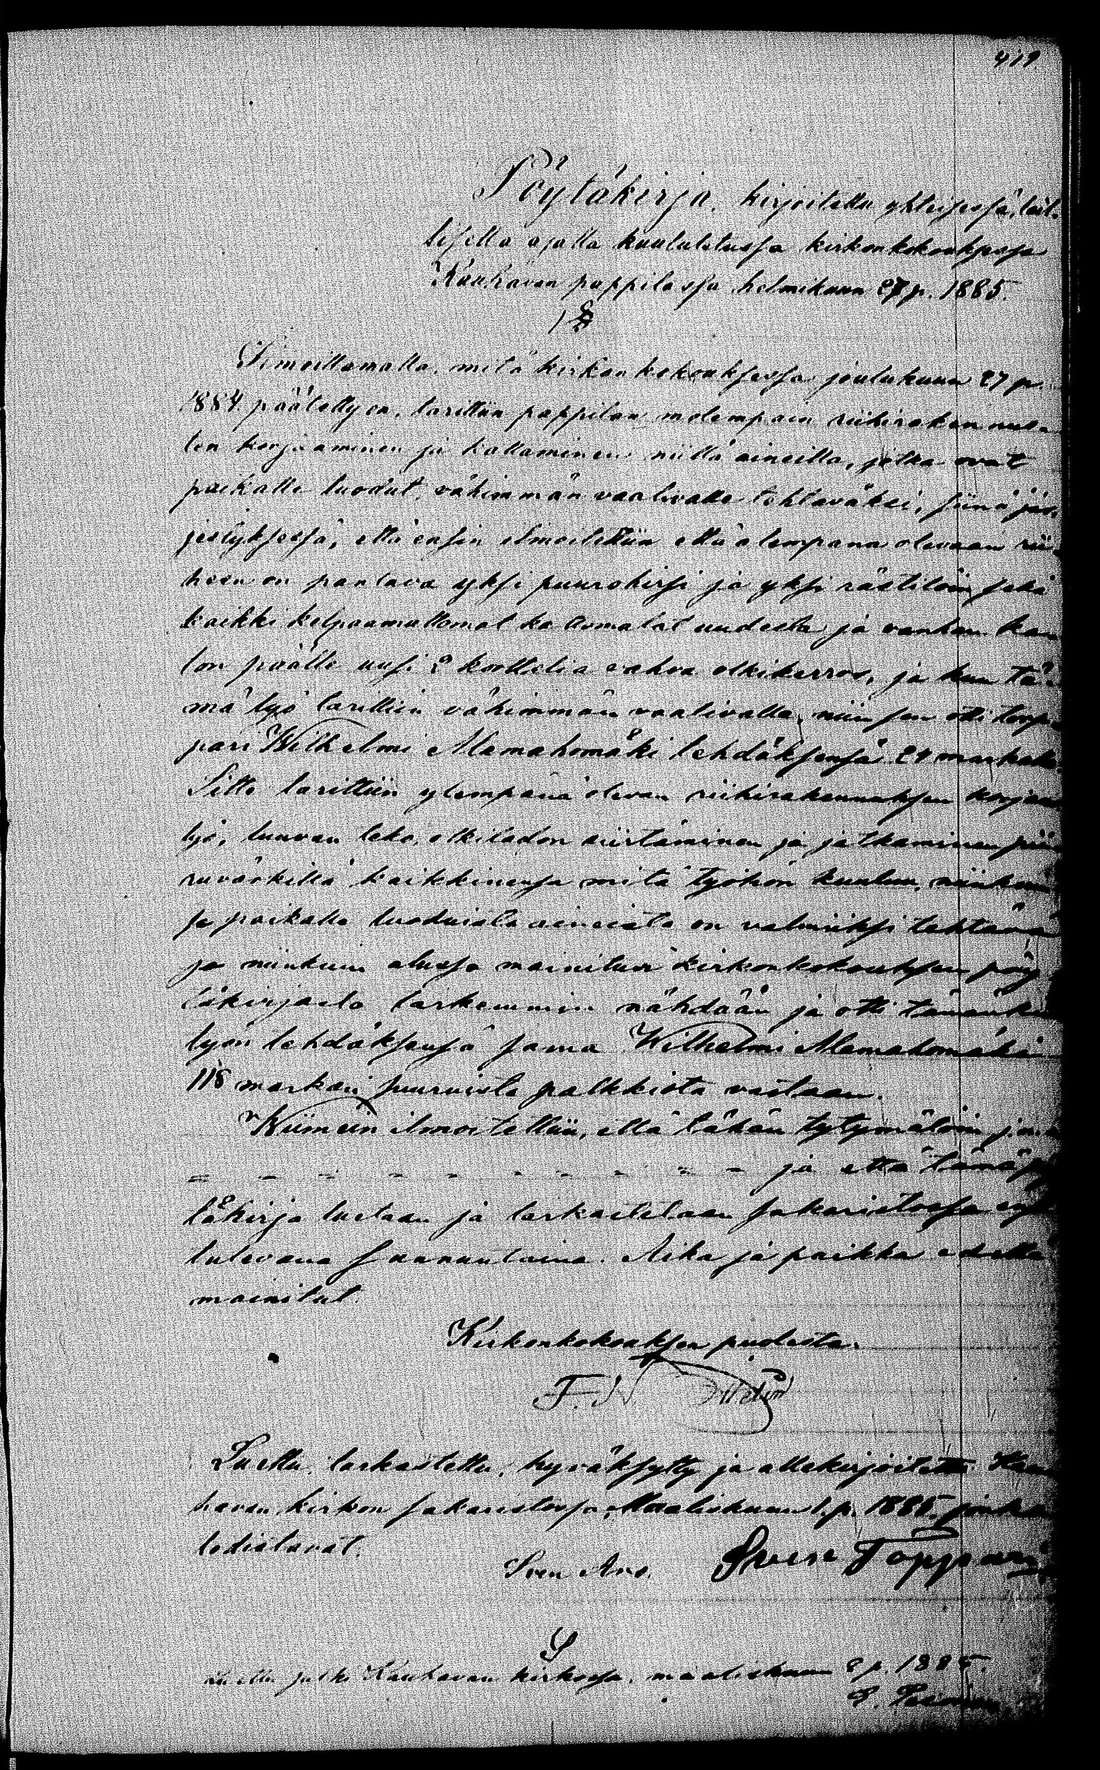 419
Pöytäkirja, kirjoitettu yhteisessä, lail-
lisella ajalla kuulutetussa kirkonkokouksessa
Kauhavan pappilassa helmikuun 27 p. 1885.
1 §
Ilmoittamalla, mitä kirkonkokouksessa joulukuun 27 p.
1884 päätetty on, tarittiin pappilan molempain riihirakennus-
ten korjaaminen ja kattaminen niillä aineilla, jotka ovat
paikalle tuodut, vähimmän vaativalle tehtäväksi, siinä jär-
jestyksessä, että ensin ilmoitettiin että alempana olevaan rii-
heen on pantava yksi puurohirsi ja yksi sekä
kaikki kelpaamattomat uudesta ja vanhan kat-
ton päälle uusi 2 korttelia vahva olkikerros, ja kun tä-
mä työ tarittiin vähimmän vaativalle, niin sen otti torp-
pari Wilhelmi Mamahomäki tehdäksensä 24 markalla
Sitte tarittiin ylempänä olevan riihirakennuksen korjaus
työ, luuvan teko, olkiladon siirtäminen ja jatkaminen
kaikkinensa mitä työhön kuuluu,
ja paikalla tuoduista aineista on valmiiksi tehtävä
ja niinkuin alussa mainitun kirkonkokouksen pöy-
täkirjasta tarkemmin nähdään ja otti tämänkin
työn tehdäksensä sama Wilhelmi Mamahomäki
118 markan suuruista palkkiota vastaan.
Kiimein ilmoitettiin, että tähän tytymätöin
- - - - - - - - - - ja että tämä pöy-
täkirja luetaan ja tarkastetaan sakaristossa
tulevana sunnuntaina. Aika ja paikka edellä
mainitut.
Kirkonkokouksen puolesta:
F. W.
Luettu, tarkastettu, hyväksytty ja allekirjoitettu Kau-
havan kirkon sakaristossa, Maaliskuun 1 p. 1885,
todistavat.
Sven Toppari
Luettu julki Kauhavan kirkossa, maaliskuun 8 p. 1885.